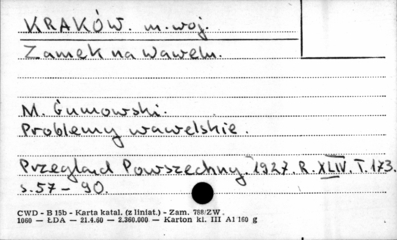 KRAKÓW. m. woj.
Zamek na Wawelu.
M. Gumowski.
Problemy wawelskie.
Przegląd Powszechny. 1927. R. XLIV. T. 173.
s. 57 - 90.
CWD - B 15b - Karta katal. (z liniat.) - Zam. 788/ZW.
1060 — ŁDA — 21.4.60 — 2.360.000 — Karton kl. III A1 160 g